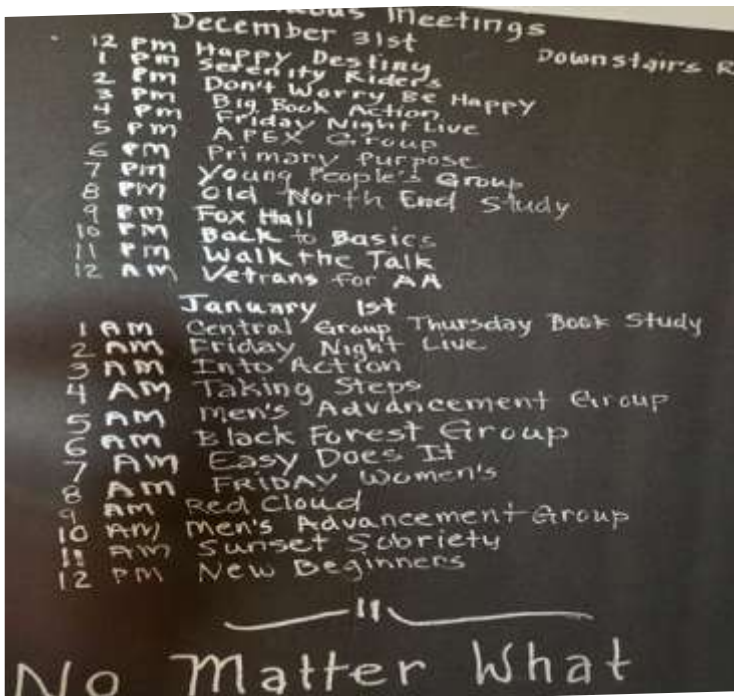 Meetings
December 31st
Downstairs
12 Pm Happy Destiny
1 Pm Serenity Riders
2 Pm Don't Worry Be Happy
3 Pm Big Book Action
4 Pm Friday Night Live
5 Pm APEX Group
6 Pm Primary Purpose
7 Pm Young People's Group
8 PM Old North End Study
9 Pm Fox Hall
10 Pm Back to Basics
11 Pm Walk the Talk
12 AM Vetrans for AA
January 1st
1 AM Central Group Thursday Book Study
2 AM Friday Night Live
3 AM Into Action
4 AM Taking Steps
5 AM Men's Advancement Group
6 AM Black Forest Group
7 AM Easy Does It
8 AM FRIDAY Women's
9 AM Red Cloud
10 AM Men's Advancement Group
11 AM Sunset Sobriety
12 PM New Beginners
No Matter What